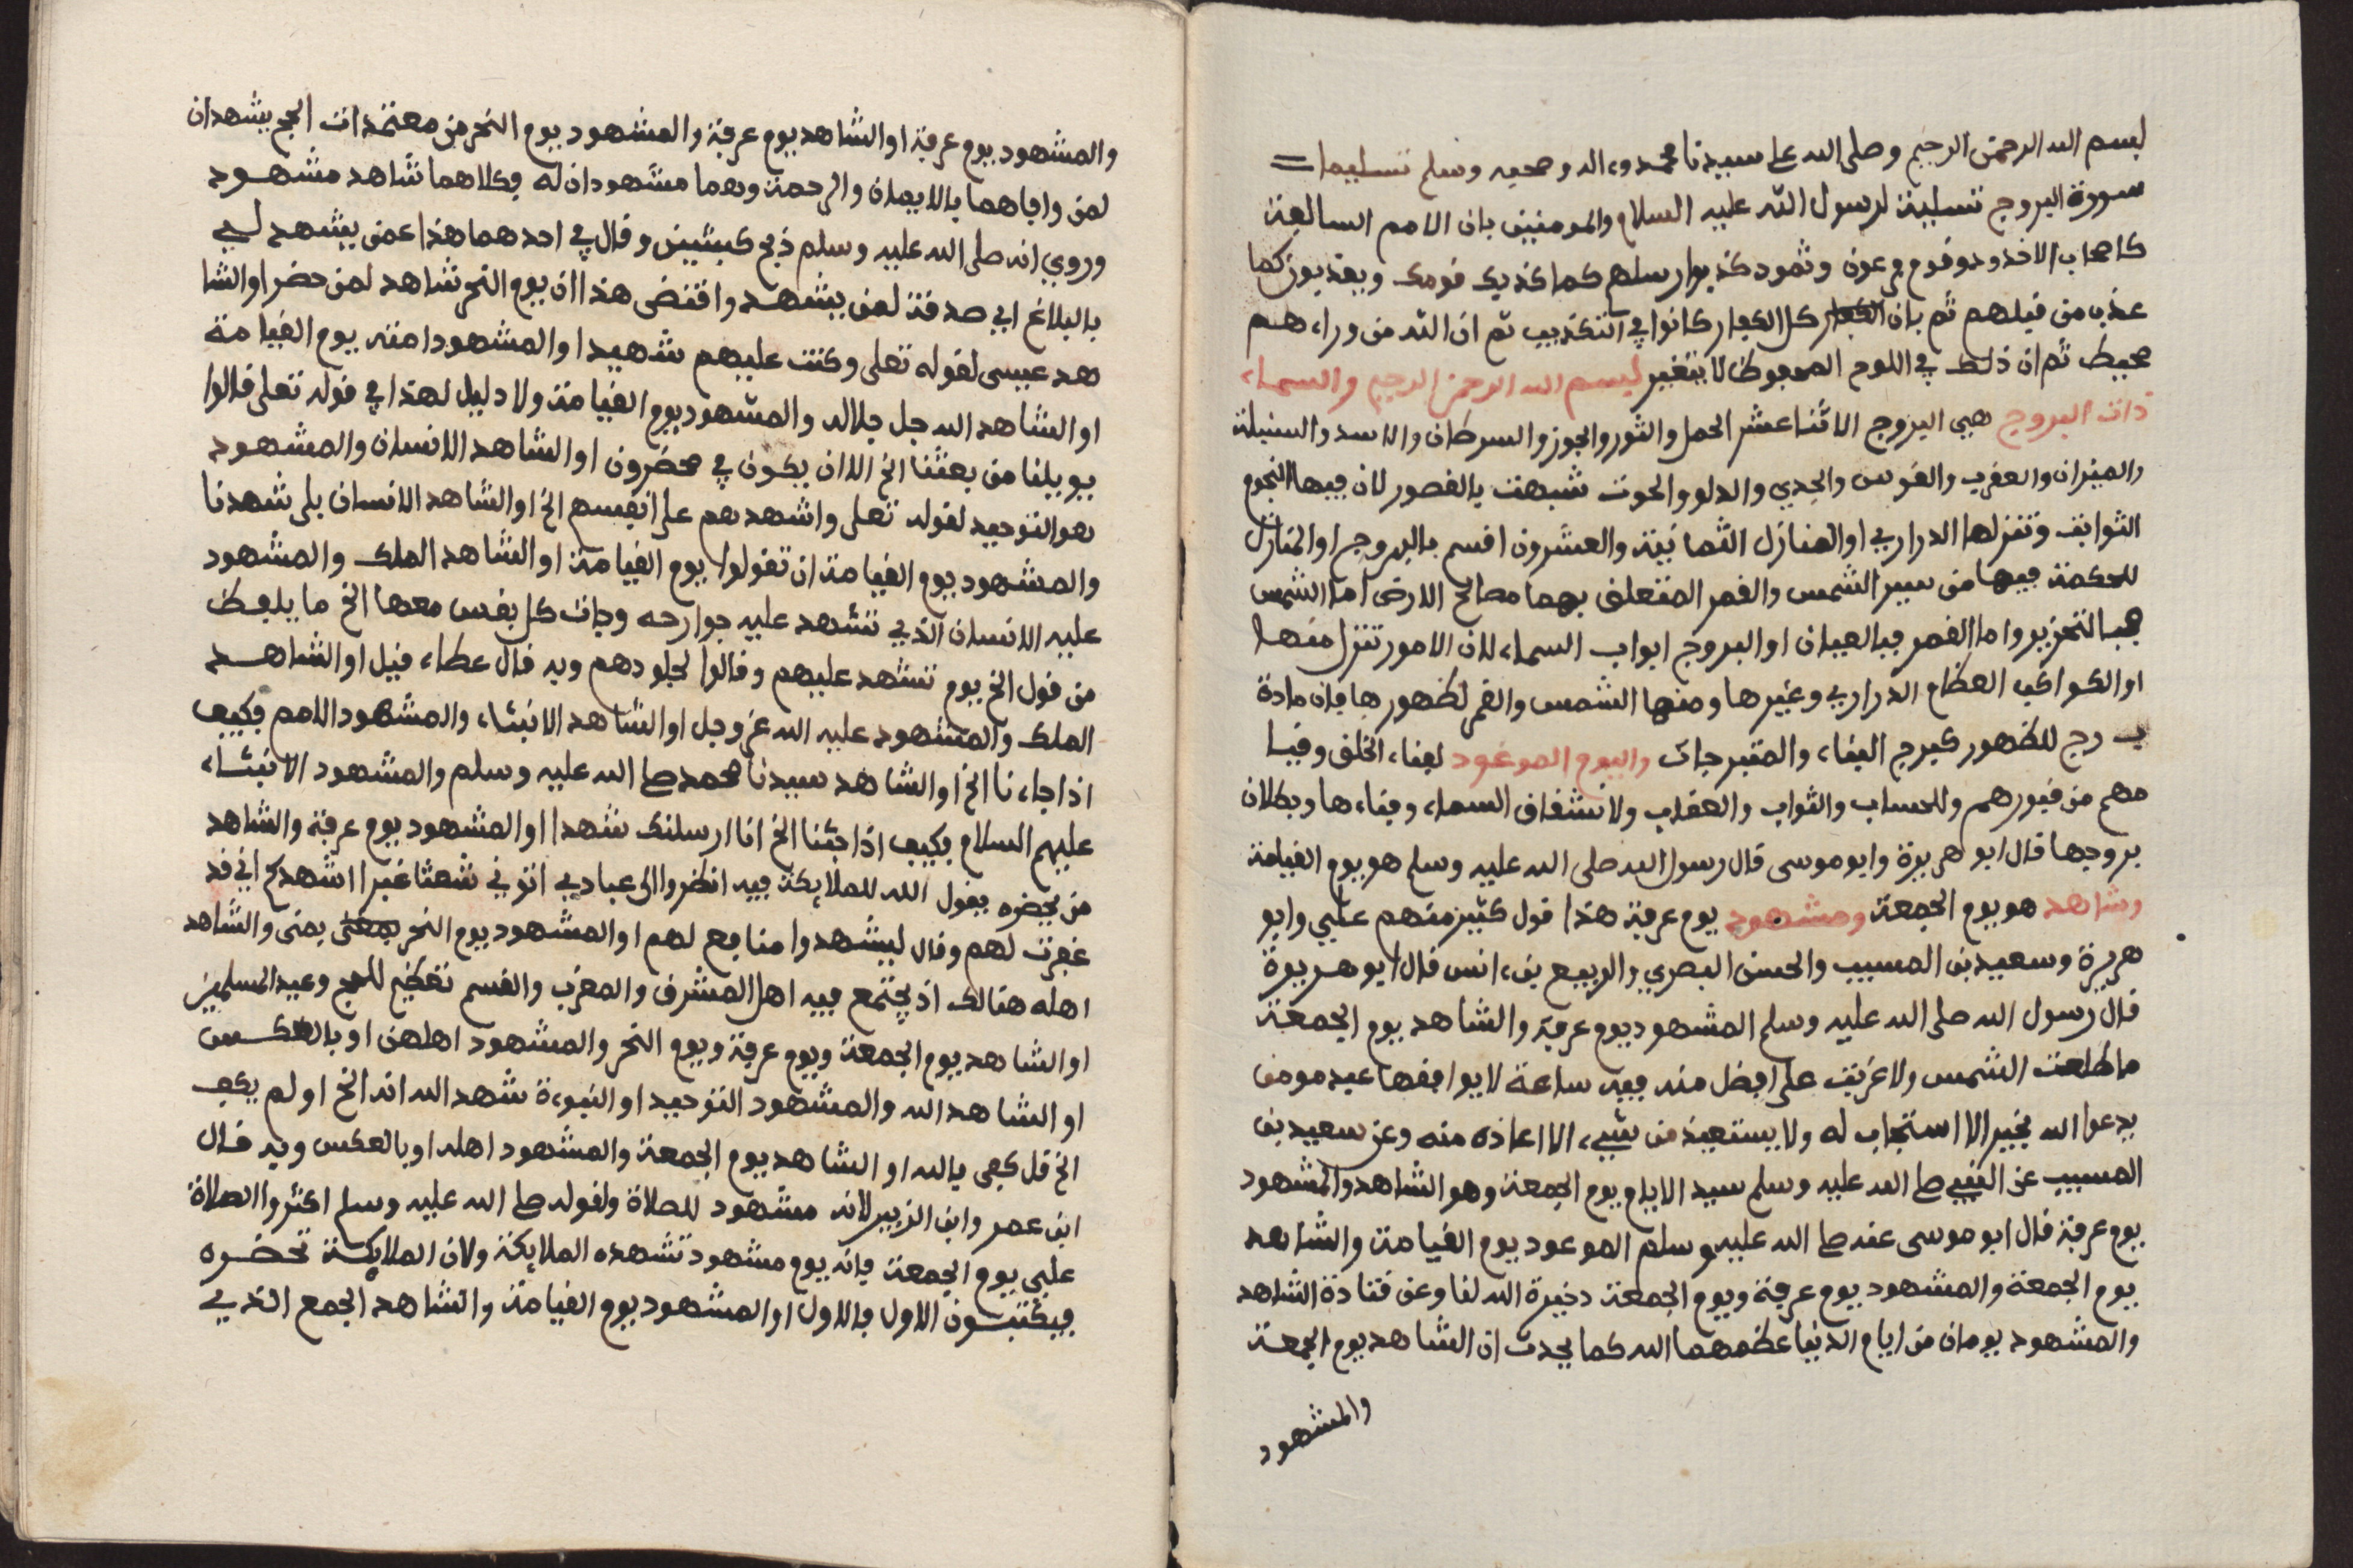 بسم الله الرحمن الرحيم وصلى الله على سيدنا محمد وءاله وصحبه وسلم تسليما =
سورة البروج تسلية لرسول الله عليه السلام والمومنين بان الامم السالفة
كاصحاب الاخدود وقوم فرعون وثمود كذبوا رسلهم كما كذبك قومك ويعذبون كما
عذب من قبلهم ثم بان الكفار كل الكفار كانوا في التكذيب ثم ان الله من وراءهم
محيط ثم ان ذلك في اللوح المحفوظ لا يتغير بسم الله الرحمن الرحيم والسماء
ذات البروج هي البروج الاثنا عشر الحمل والثور والجوز والسرطان والاسد والسنبلة
والميزان والعقرب والقوس والجدي والدلو والحوت شبهت بالقصور لان فيها النجوم
الثوابت وتنزلها الدراري او المنازل الثمانية والعشرون اقسم بالبروج او المنازل
للحكمة فيها من سير الشمس والقمر المتعلق بهما مصالح الارض اما الشمس
فبالتحزير واما القمر فبالعيان او البروج ابواب السماء لان الامور تنزل منها
او الكواكب العظام الدراري وغيرها ومنها الشمس والقمر لظهورها فان مادة
ب رج للظهور كبرج البناء والمتبرجات واليوم الموعود لفناء الخلق وقيا
مهم من قبورهم وللحساب والثواب والعقاب ولانشقاق السماء وفناءها وبطلان
بروجها قال ابو هريرة وابو موسى قال رسول الله صلى الله عليه وسلم هو يوم القيامة
وشاهد هو يوم الجمعة ومشهود يوم عرفة هذا قول كثير منهم علي وابو
هريرة وسعيد بن المسيب والحسن البصري والربيع بن انس قال ابو هريرة
قال رسول الله صلى الله عليه وسلم المشهود يوم عرفة والشاهد يوم الجمعة
ما طلعت الشمس ولا غربت على افضل منه فيه ساعة لا يوافقها عبد مومن
يدعوا الله بخير الا استجاب له ولا يستعيذ من شيء الا اعاذه منه وعن سعيد بن
المسيب عن النبي صلى الله عليه وسلم سيد الايام يوم الجمعة وهو الشاهد والمشهود
يوم عرفة قال ابو موسى عنه صلى الله عليه وسلم الموعود يوم القيامة والشاهد
يوم الجمعة والمشهود يوم عرفة ويوم الجمعة دخيرة الله لنا وعن قتادة الشاهد
والمشهود يومان من ايام الدنيا عظمهما الله كما يحدث ان الشاهد يوم الجمعة
والمشهود
والمشهود يوم عرفة او الشاهد يوم عرفة والمشهود يوم النحر من معتمدات الحج يشهدان
لمن وافاهما بالايمان والرحمة وهما مشهودان له فكلاهما شاهد مشهود
وروي انه صلى الله عليه وسلم ذبح كبشين وقال في احدهما هذا عمن يشهد لي
بالبلاغ اي صدقة لمن يشهد واقتضى هذا ان يوم النحر شاهد لمن حضر او الشا
هد عيسى لقوله تعلى وكنت عليهم شهيدا والمشهود امته يوم القيامة
او الشاهد الله جل جلاله والمشهود يوم القيامة ولا دليل لهذا في قوله تعلى قالوا
يويلنا من بعثنا الخ الا ان يكون في محضرون او الشاهد الانسان والمشهود
هو التوحيد لقوله تعلى واشهدهم على انفسهم الخ او الشاهد الانسان بلى شهدنا
والمشهود يوم القيامة ان تقولوا يوم القيامة او الشاهد الملك والمشهود
عليه الانسان الذي تشهد عليه جوارحه وجاءت كل نفس معها الخ ما يلفظ
من قول الخ يوم تشهد عليهم وقالوا لجلودهم وبه قال عطاء قيل او الشاهد
الملك والمشهود عليه الله عز وجل او الشاهد الانبياء والمشهود الامم فكيف
اذا جاءنا الخ او الشاهد سيدنا محمد صلى الله عليه وسلم والمشهود الانبياء
عليهم السلام فكيف اذا جئنا الخ انا ارسلنك شهدا او المشهود يوم عرفة والشاهد
من يحضره يقول الله للملايكة فيه انظروا الى عبادي اتوني شعثا غبرا اشهدكم اني قد
غفرت لهم وقال ليشهدوا منافع لهم او المشهود يوم النحر بمنى والشاهد
اهله هنالك اذ يجتمع فيه اهل المشرق والمغرب والقسم تعظيم للحج وعيد المسلمين
او الشاهد يوم الجمعة ويوم عرفة ويوم النحر والمشهود اهلهن او بالعكس
او الشاهد الله والمشهود التوحيد او النبوءة شهد الله انه الخ او لم يكف
الخ قل كفى بالله او الشاهد يوم الجمعة والمشهود اهله او بالعكس وبه قال
ابن عمر وابن الزبير لانه مشهود للصلاة ولقوله صلى الله عليه وسلم اكثروا الصلاة
علي يوم الجمعة فانه يوم مشهود تشهده الملايكة ولان الملايكة تحضره
فيكتبون الاول فالاول او المشهود يوم القيامة والشاهد الجمع الذي